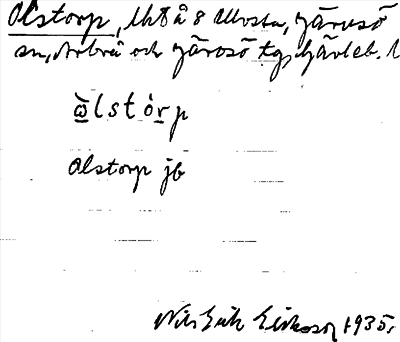 Olstorp, lht å 8 Ullvsta, Järvsö
sn, Arbrå och Järvsö tg, Gävleb. l
ὼlstórp
Olstorp jb
Nils Erik Eriksson 1935.